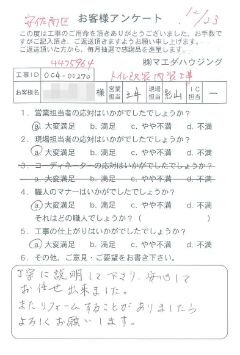 安佐南区
お客様アンケート
12/23
この度は工事のご用命を頂きありがとうございました。お手数で
すがご記入頂き、ご返送頂きますようお願い申し上げます。
ご返送頂いた方から、毎月抽選で感謝品を進呈します。
㈱マエダハウジング
工事ID
004-01270
トイレ改装内装工事
お客様名
様
営業担当
現場担当
影山
IC担当
1. 営業担当者の応対はいかがでしたでしょうか?
ⓐ大変満足 b. 満足 c. やや不満 d. 不満
2. 現場担当者の応対はいかがでしたでしょうか?
ⓐ大変満足 b. 満足 c. やや不満 d. 不満
3. コーディネーターの応対はいかがでしたでしょうか?
a. 大変満足 b. 満足 c. やや不満 d. 不満
4. 職人のマナーはいかがでしたでしょうか?
ⓐ大変満足 b. 満足 c. やや不満 d. 不満
それはどの職人でしょうか?( )
5. 工事の仕上がりはいかがでしたでしょうか?
ⓐ大変満足 b. 満足 c. やや不満 d. 不満
6. その他、ご意見・ご要望をお書き下さい。
丁寧に説明して下さり、安心して
お任せ出来ました。
またリフォームすることがありましたら
よろしくお願いします。